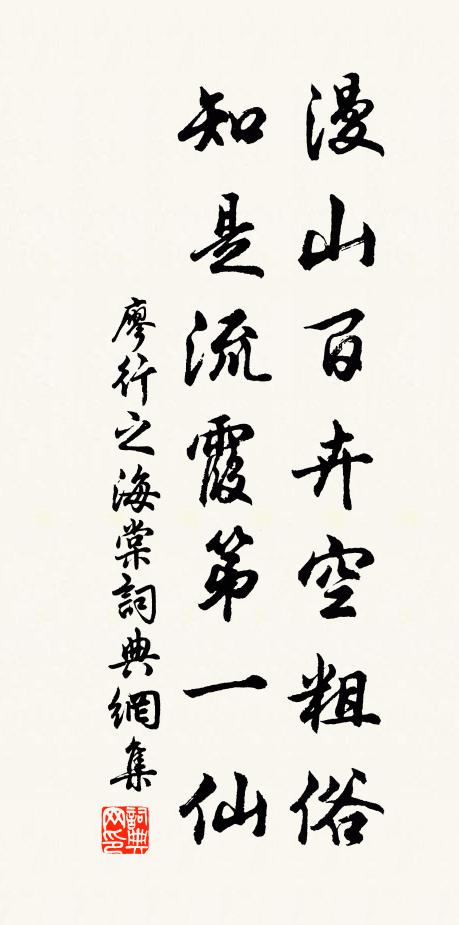 漫山百卉空粗俗
知是流霞第一仙
廖行之海棠詞典網集
詞典
网印